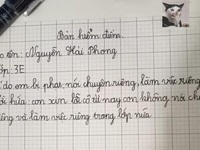 Bản kiểm điểm
tên: Nguyễn Hải Phong
lớp: 3E
do em bị phạt nói chuyện riêng, làm việc riêng
hứa con xin lỗi cô từ nay con không nói chu
riêng và làm việc riêng trong lớp nữa.